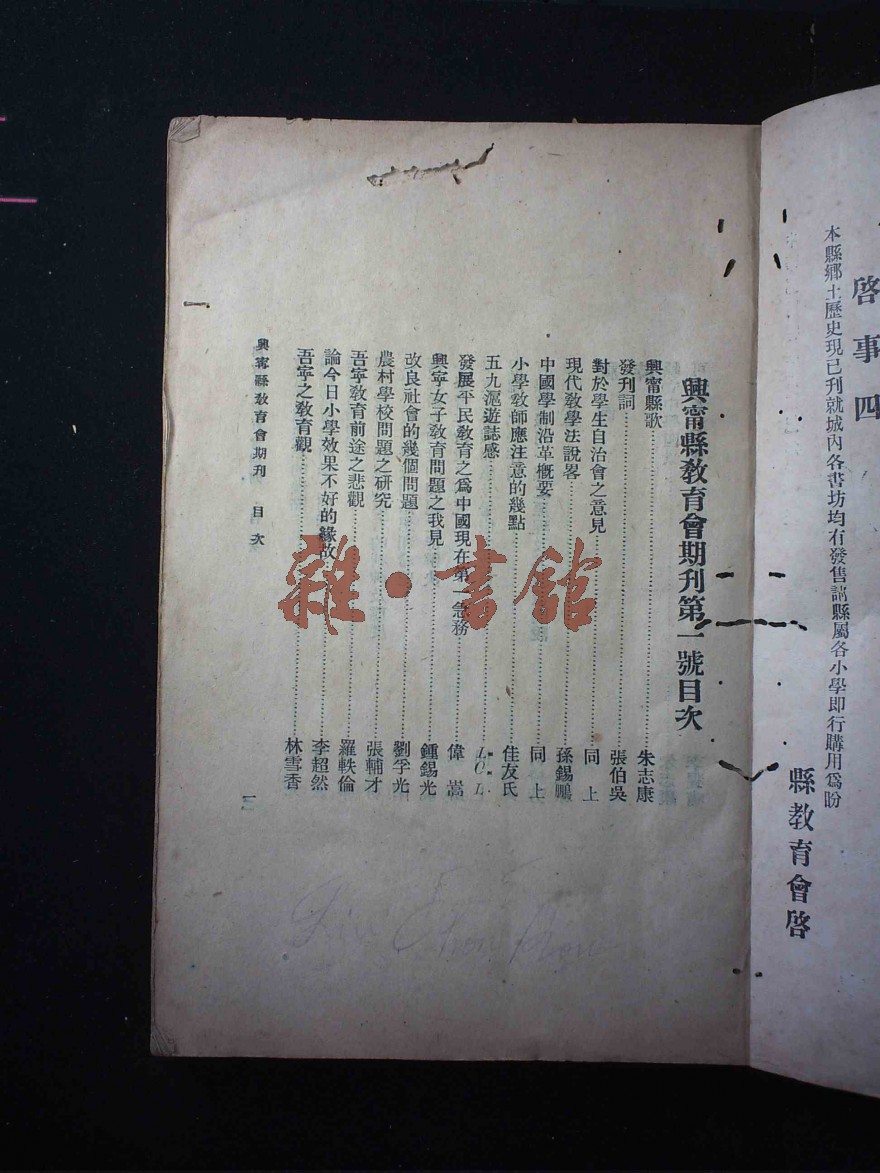 啓事四
本縣鄉土歷史現已刋就城內各書坊均有發售請縣屬各小學即行購用爲盼
縣教育會啓
興甯縣教育會期刋第一號目次
興甯縣歌……朱志康
發刋詞……張伯吳
對於學生自治會之意見……同上
現代教學法說畧……孫錫鵬
中國學制沿革概要……同上
小學教師應注意的幾點……佳友氏
五九滬遊誌感……L.C.L.
發展平民教育之爲中國現在第一急務……偉嵩
興寧女子教育問題之我見……鍾錫光
改良社會的幾個問題……劉孚光
農村學校問題之研究……張輔才
吾寧教育前途之悲觀……羅軼倫
論今日小學效果不好的緣故……李超然
吾寧之教育觀……林雪香
興甯縣教育會期刋 目次
一
雜·書館